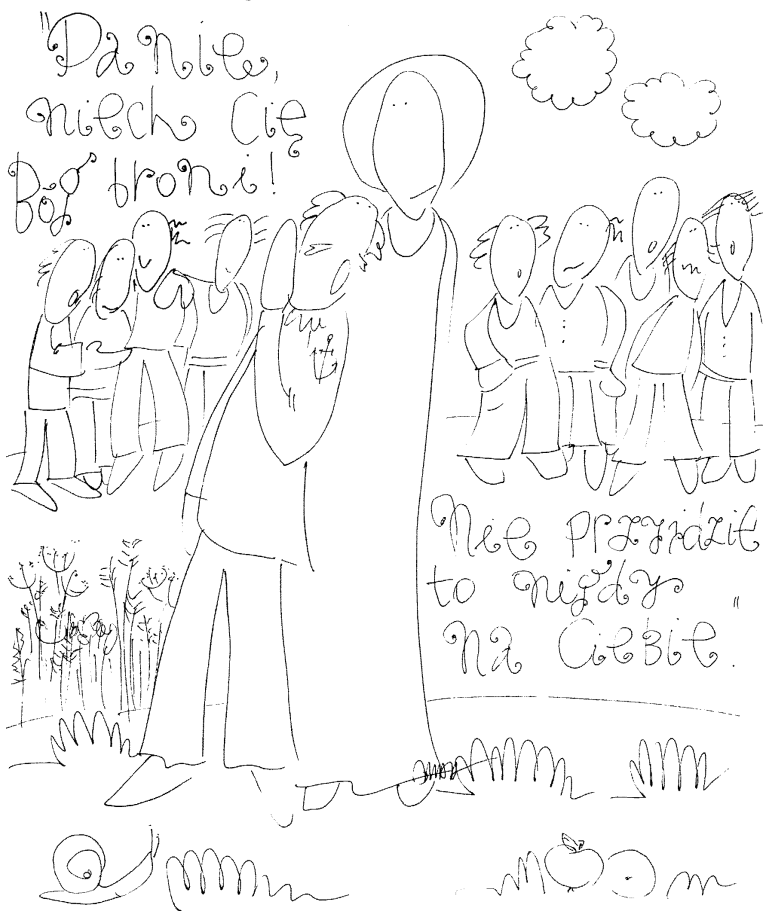 "Panie,
niech Cię
Bóg broni!
Nie przyjdzie
to nigdy
na Ciebie."